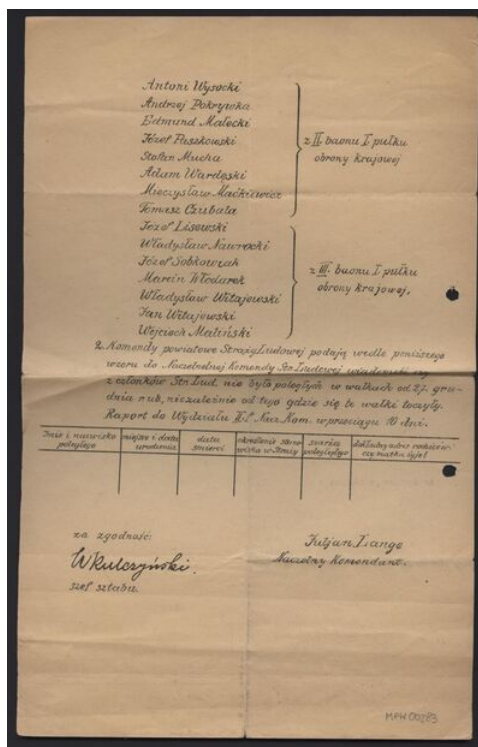 Antoni Wysocki
Andrzej Pokrywka
Edmund Małecki
Józef Paszkowski
Stefan Mucha
Adam Wardęski
Mieczysław Maćkiewicz
Tomasz Czubała
z II. baonu I pułku
obrony krajowej
Józef Lisewski
Władysław Nawrocki
Józef Sobkowiak
Marcin Włodarek
Władysław Witajewski
Jan Witajewski
Wojciech Maliński
z III. baonu I pułku
obrony krajowej.
2. Komendy powiatowe Straży Ludowej podają wedle poniższego
wzoru do Naczelnej Komendy Str. Ludowej wiadomość czy
z członków Str. Lud. nie było poległych w walkach od 27. gru-
dnia r. ub, niezależnie od tego gdzie się te walki toczyły.
Raport do Wydziału Nacz. Kom. w przeciągu 10 dni.
Imię i nazwisko poległego
miejsce i data urodzenia
data śmierci
określenie stanowiska w Straży
szarża poległego
dokładny adres rodziców czy matka żyje?
za zgodność:
WKulczyński.
szef sztabu.
Juljan Lange
Naczelny Komendant.
MPW 00283